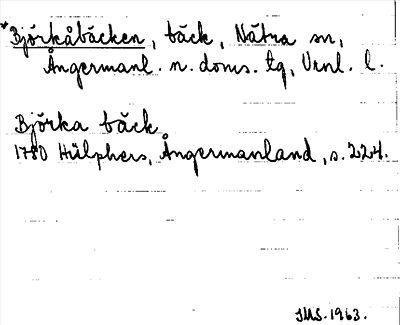 *Björkåbäcken, bäck, Nätra sn,
Ångermanl. n. doms. tg, Vnl. l.
Björka bäck
1780 Hülphers, Ångermanland, s. 224.
JMS. 1963.